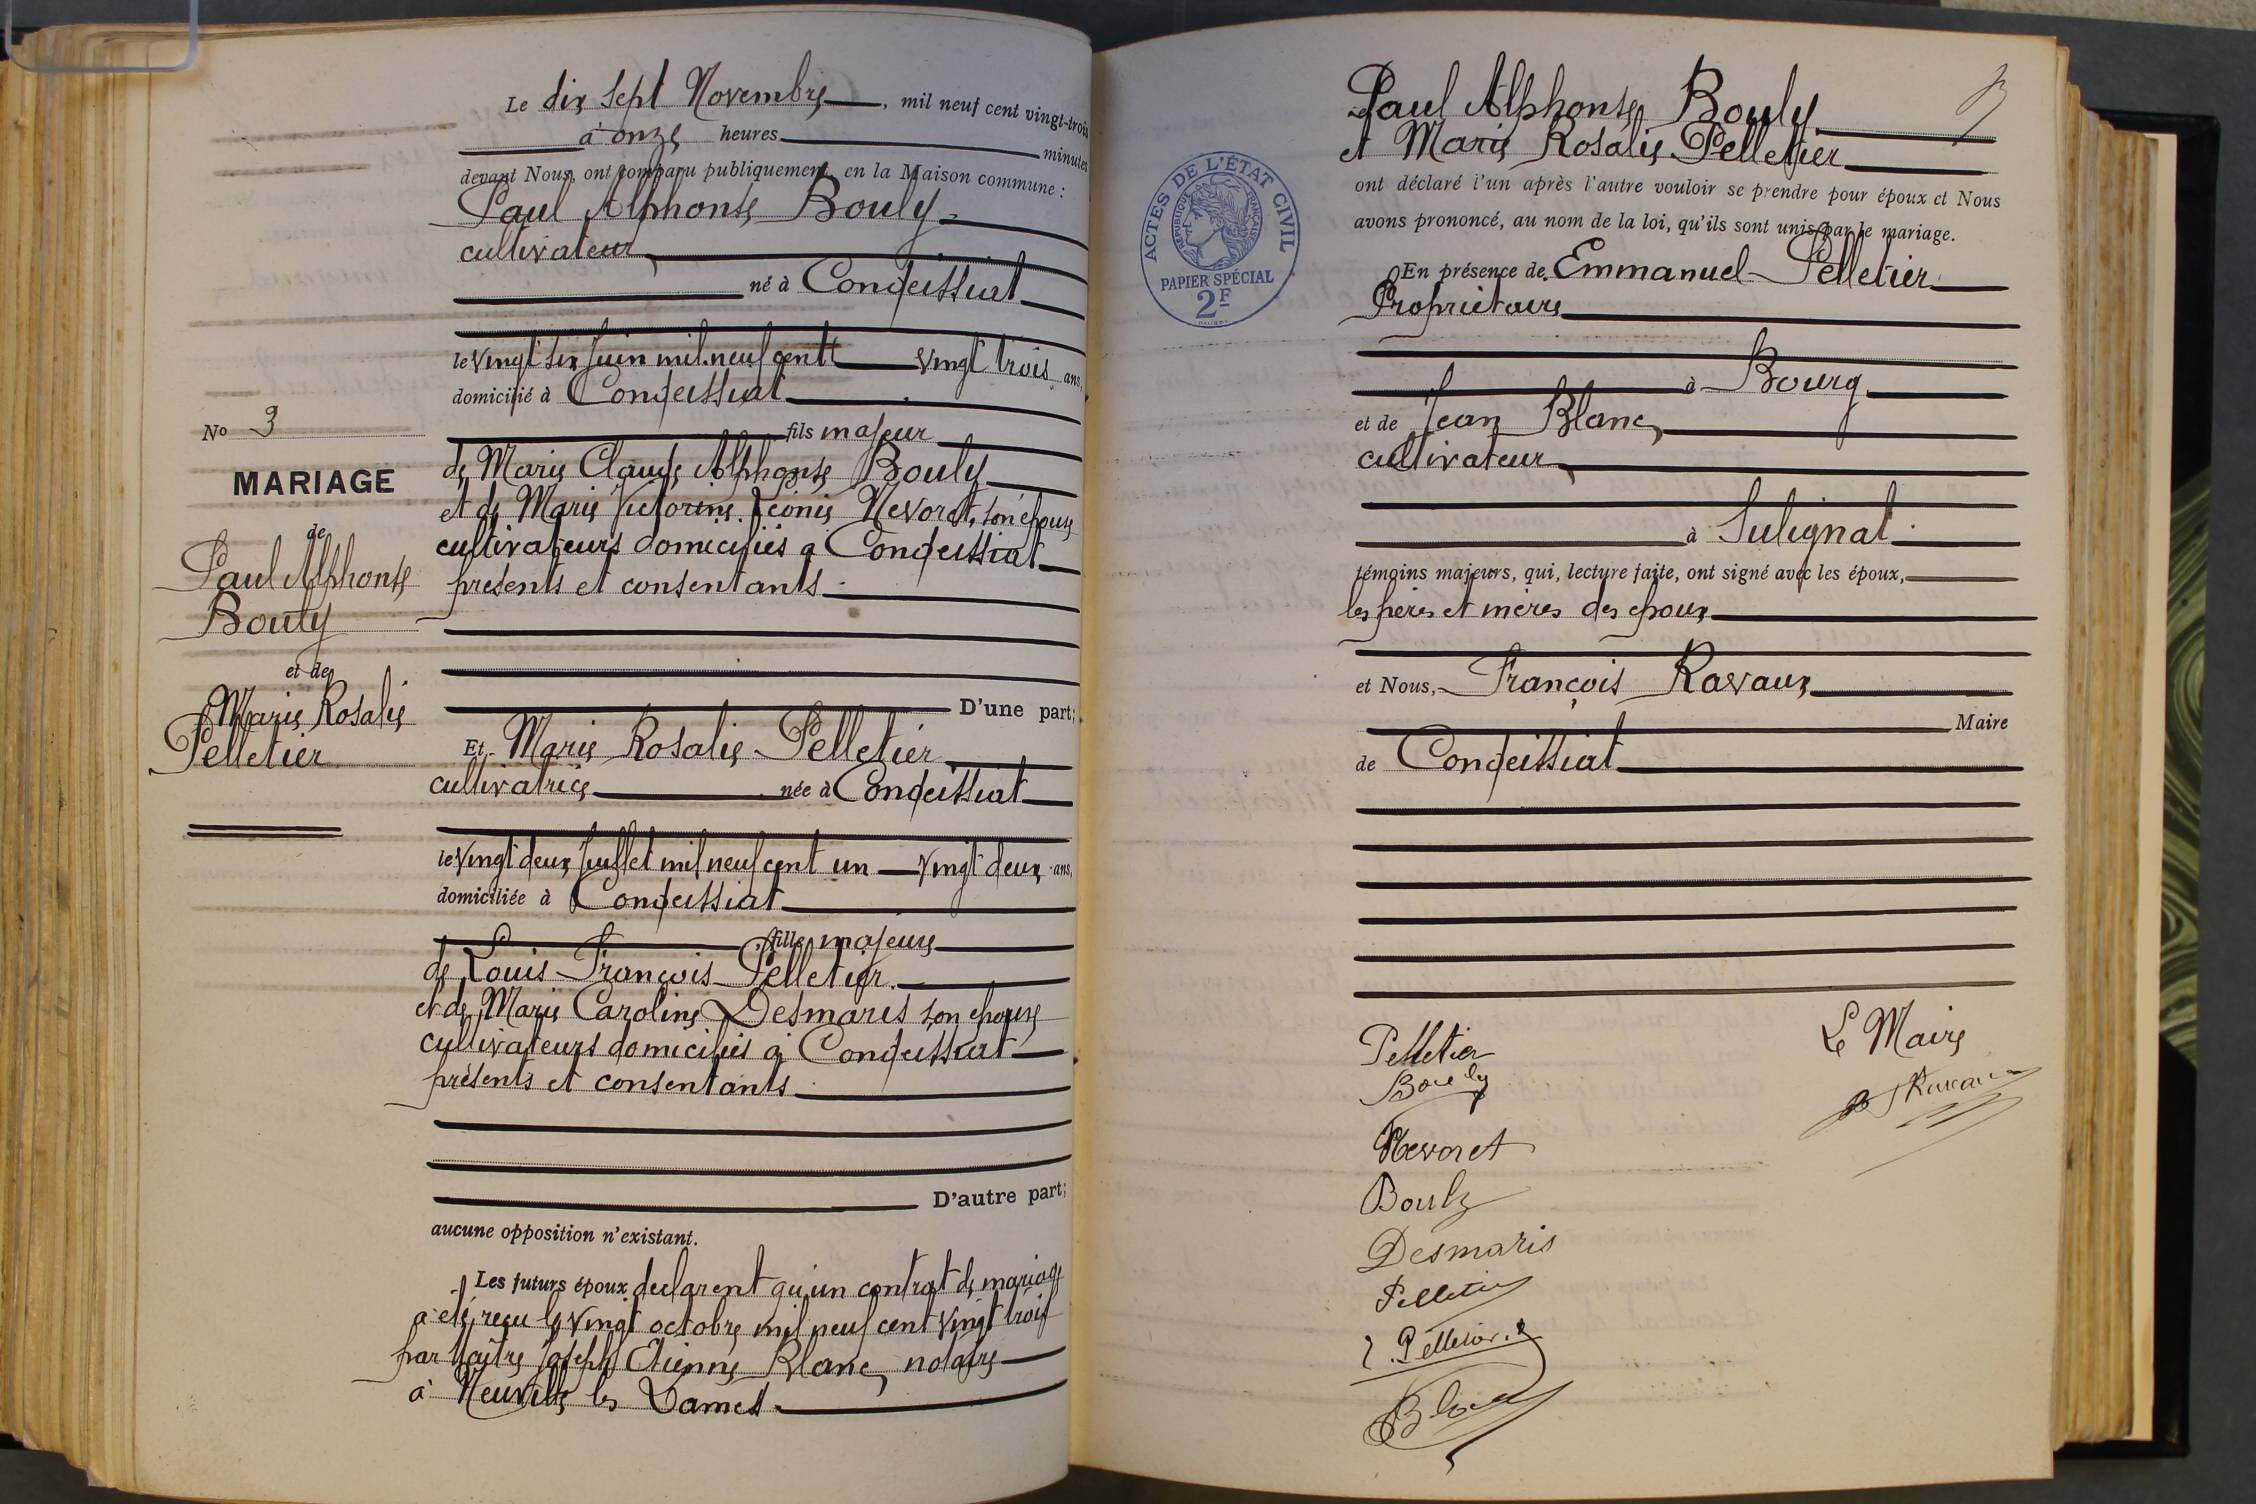 Le dix sept Novembre, mil neuf cent vingt-trois
à onze heures minutes
devant Nous, ont comparu publiquement en la Maison commune :
Paul Alphonse Bouly
cultivateur
né à Condeissiat
le vingt six Juin mil neuf cent vingt trois ans,
domicilié à Condeissiat
fils majeur
de Marie Claude Alphonse Bouly
et de Marie Victorine Léonie Nevoret, son épouse
cultivateurs domiciliés à Condeissiat
présents et consentants
D'une part;
No 3
MARIAGE
de
Paul Alphonse
Bouly
et de
Marie Rosalie
Pelletier
Et Marie Rosalie Pelletier
cultivatrice née à Condeissiat
le vingt deux Juillet mil neuf cent un vingt deux ans,
domiciliée à Condeissiat
fille majeure
de Louis François Pelletier
et de Marie Caroline Desmaris son épouse
cultivateurs domiciliés à Condeissiat
présents et consentants
D'autre part;
aucune opposition n'existant.
Les futurs époux déclarent qu'un contrat de mariage
a été reçu le vingt octobre mil neuf cent vingt trois
par Maître Joseph Etienne Blanc, notaire
à Neuville les Dames
Paul Alphonse Bouly
et Marie Rosalie Pelletier
ont déclaré l'un après l'autre vouloir se prendre pour époux et Nous
avons prononcé, au nom de la loi, qu'ils sont unis par le mariage.
ACTES DE L'ÉTAT CIVIL
RÉPUBLIQUE FRANÇAISE
PAPIER SPÉCIAL
2F
En présence de Emmanuel Pelletier
Propriétaire
à Bourg
et de Jean Blanc,
cultivateur
à Sulignat
témoins majeurs, qui, lecture faite, ont signé avec les époux,
les pères et mères des époux
et Nous, François Ravaux
Maire
de Condeissiat
Pelletier
Bouly
Nevoret
Bouly
Desmaris
Pelletier
Pelletier
Blanc
Le Maire
Ravaux